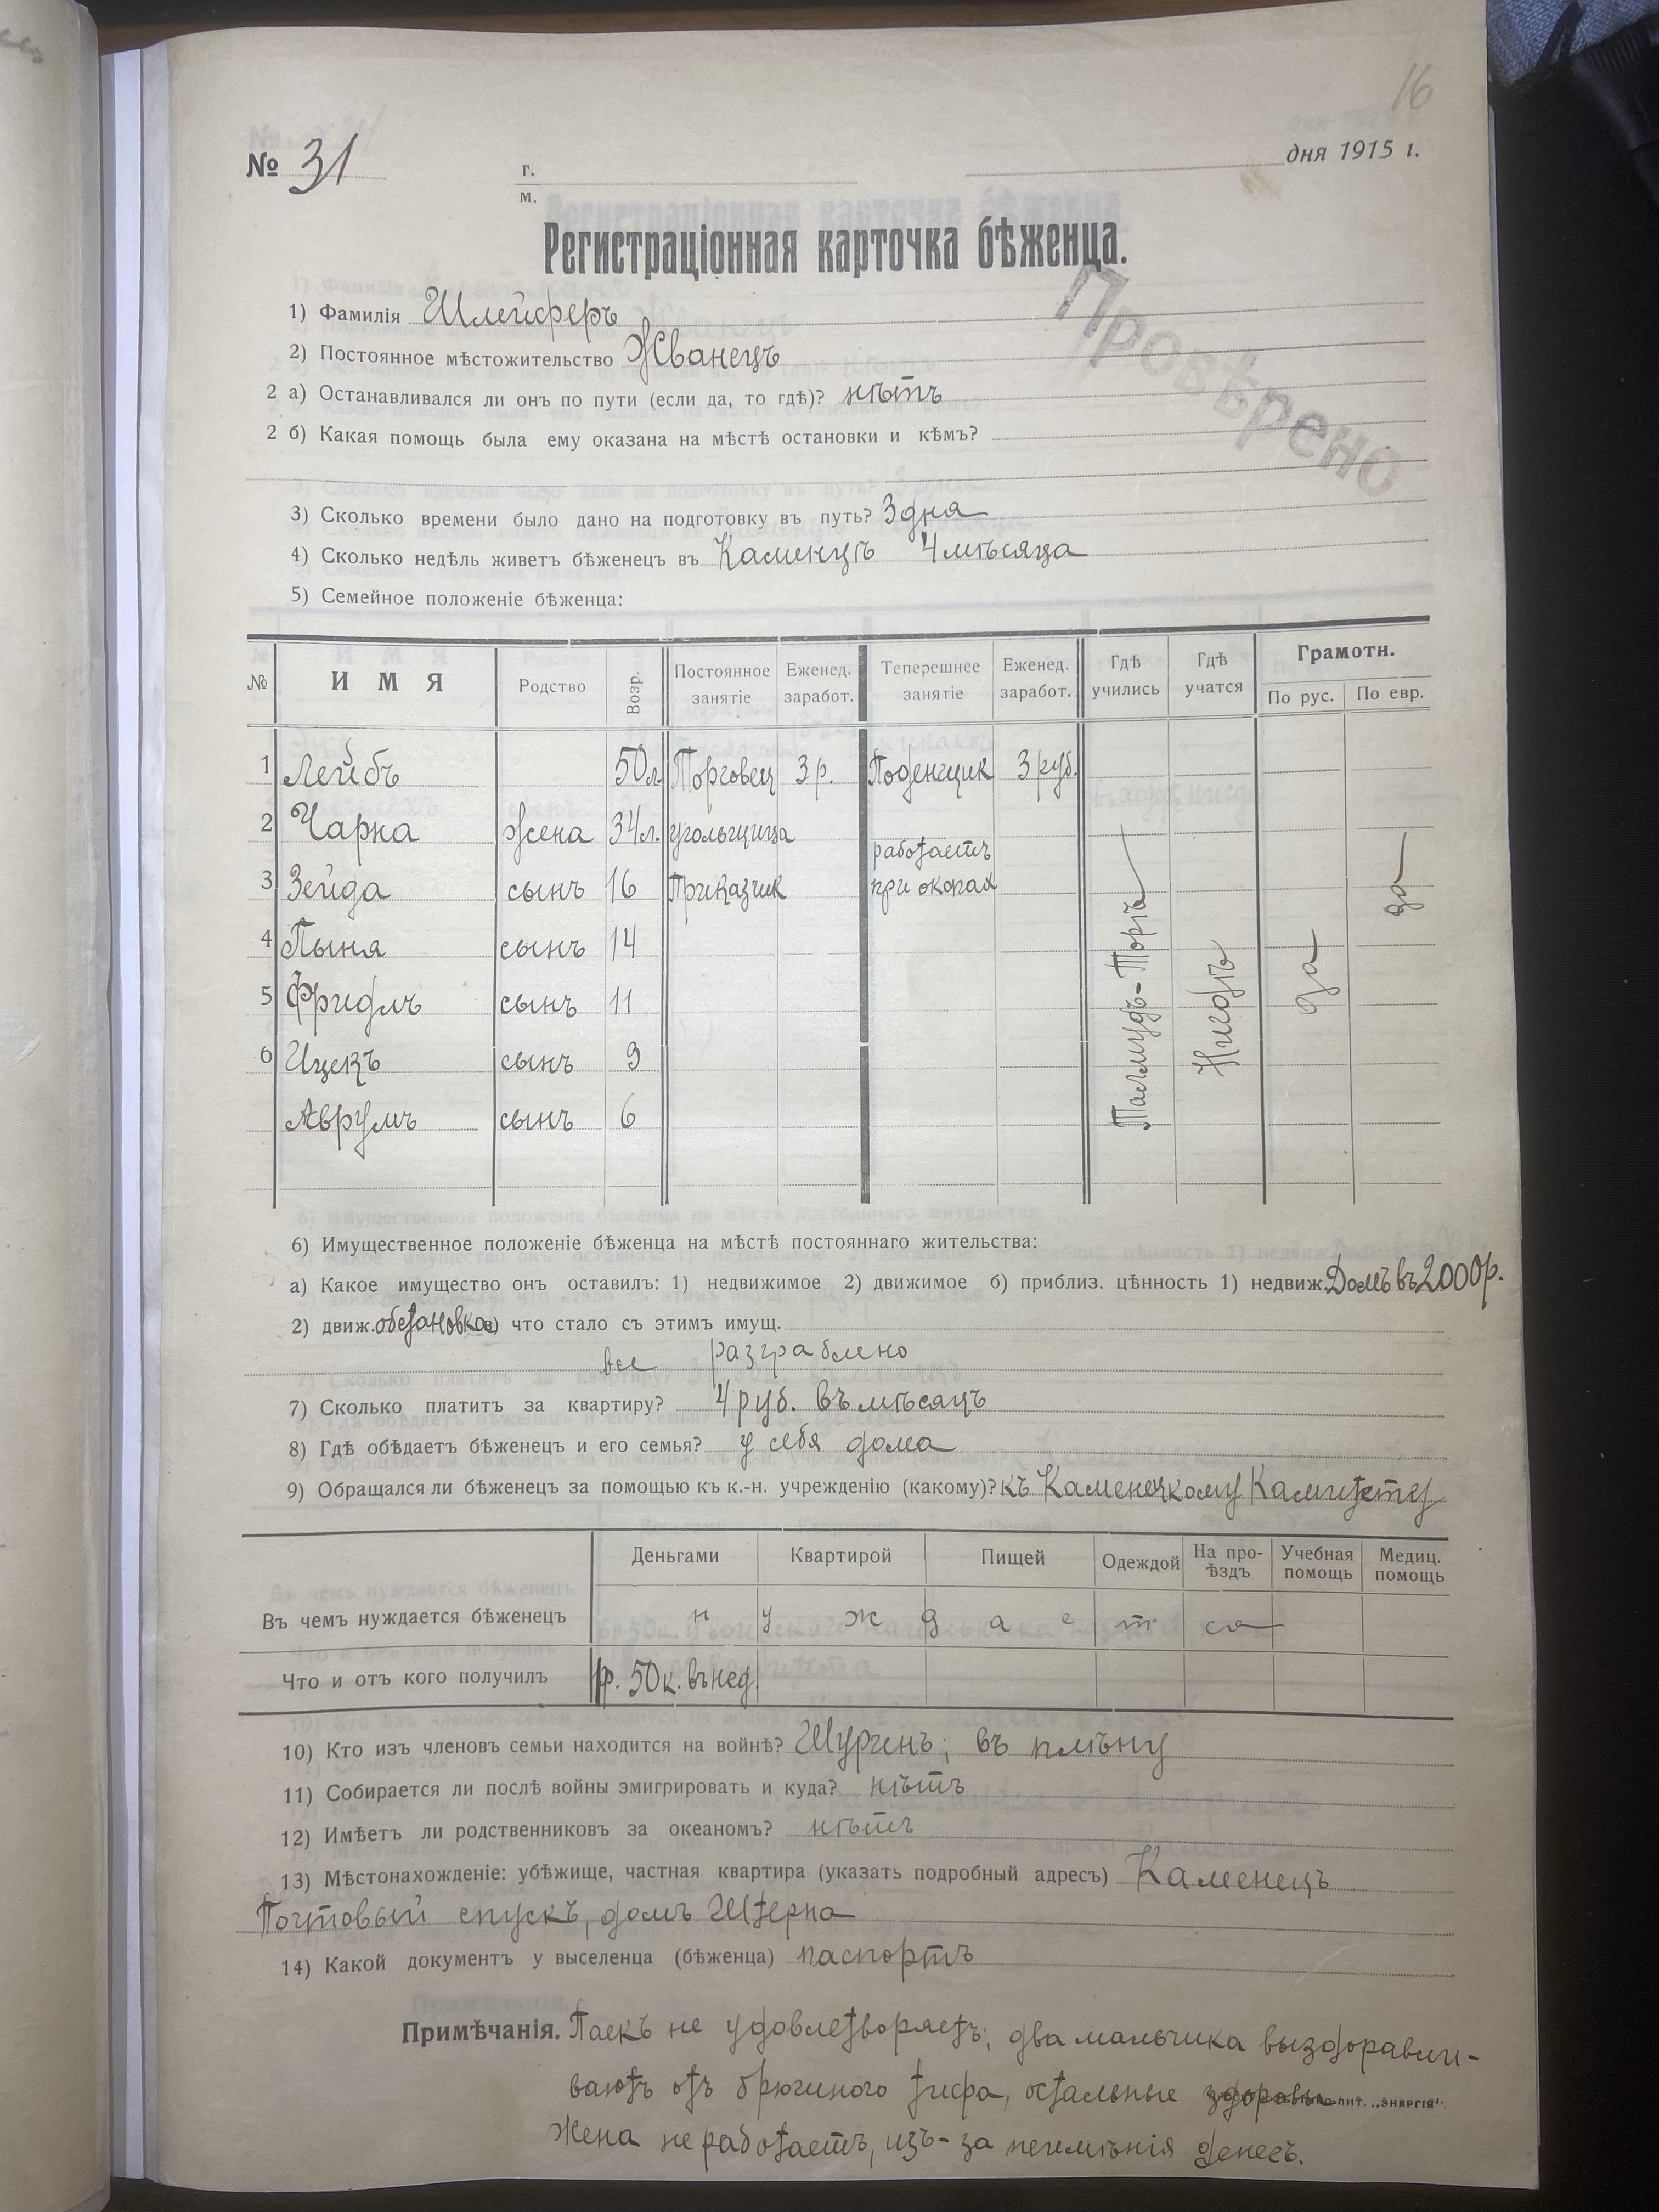 16
№ 31 г. дня 1915 г.
м.
Регистраціонная карточка бѣженца.
Провѣрено
1) Фамилія Шлейферъ
2) Постоянное мѣстожительство Жванецъ
2 а) Останавливался ли онъ по пути (если да, то гдѣ)? нѣтъ
2 б) Какая помощь была ему оказана на мѣстѣ остановки и кѣмъ?
3) Сколько времени было дано на подготовку въ путь? 3 дня
4) Сколько недѣль живетъ бѣженецъ въ Каменцѣ 4 мѣсяца
5) Семейное положеніе бѣженца:
№ ИМЯ Родство Возр. Постоянное занятіе Еженед. заработ. Теперешнее занятіе Еженед. заработ. Гдѣ учились Гдѣ учатся Грамотн. По рус. По евр.
1 Лейбъ 50 л. Торговец 3 р. Поденщик 3 руб.
2 Чарна жена 34 л. угольщица
3 Зейда сынъ 16 Приказчик работаетъ при окопах
4 Пыня сынъ 14
5 Фридлъ сынъ 11
6 Ицекъ сынъ 9
Аврумъ сынъ 6
Талмудъ-Торѣ
Нигдѣ
да
да
6) Имущественное положеніе бѣженца на мѣстѣ постояннаго жительства:
а) Какое имущество онъ оставилъ: 1) недвижимое 2) движимое б) приблиз. цѣнность 1) недвиж. Домъ въ 2000 р.
2) движ. обстановка в) что стало съ этимъ имущ.
все разграблено
7) Сколько платитъ за квартиру? 4 руб. въ мѣсяцъ
8) Гдѣ обѣдаетъ бѣженецъ и его семья? у себя дома
9) Обращался ли бѣженец за помощью къ к.-н. учрежденію (какому)? къ Каменецкому Камитету
Деньгами Квартирой Пищей Одеждой На про-ѣздъ Учебная помощь Медиц. помощь
Въ чемъ нуждается бѣженецъ н у ж д а е т ся
Что и отъ кого получилъ р. 50 к. въ нед.
10) Кто изъ членовъ семьи находится на войнѣ? Шуринъ; въ плѣну
11) Собирается ли послѣ войны эмигрировать и куда? нѣтъ
12) Имѣетъ ли родственниковъ за океаномъ? нѣтъ
13) Мѣстонахожденіе: убѣжище, частная квартира (указать подробный адресъ) Каменецъ
Почтовый спускъ, домъ Штерна
14) Какой документъ у выселенца (бѣженца) паспортъ
Примѣчанія. Паекъ не удовлетворяетъ; два мальчика выздоравли-
ваютъ отъ брюшного тифа, остальные здоровы
лит. „ЭНЕРГІЯ".
Жена не работаетъ, изъ-за неимѣнія денегъ.